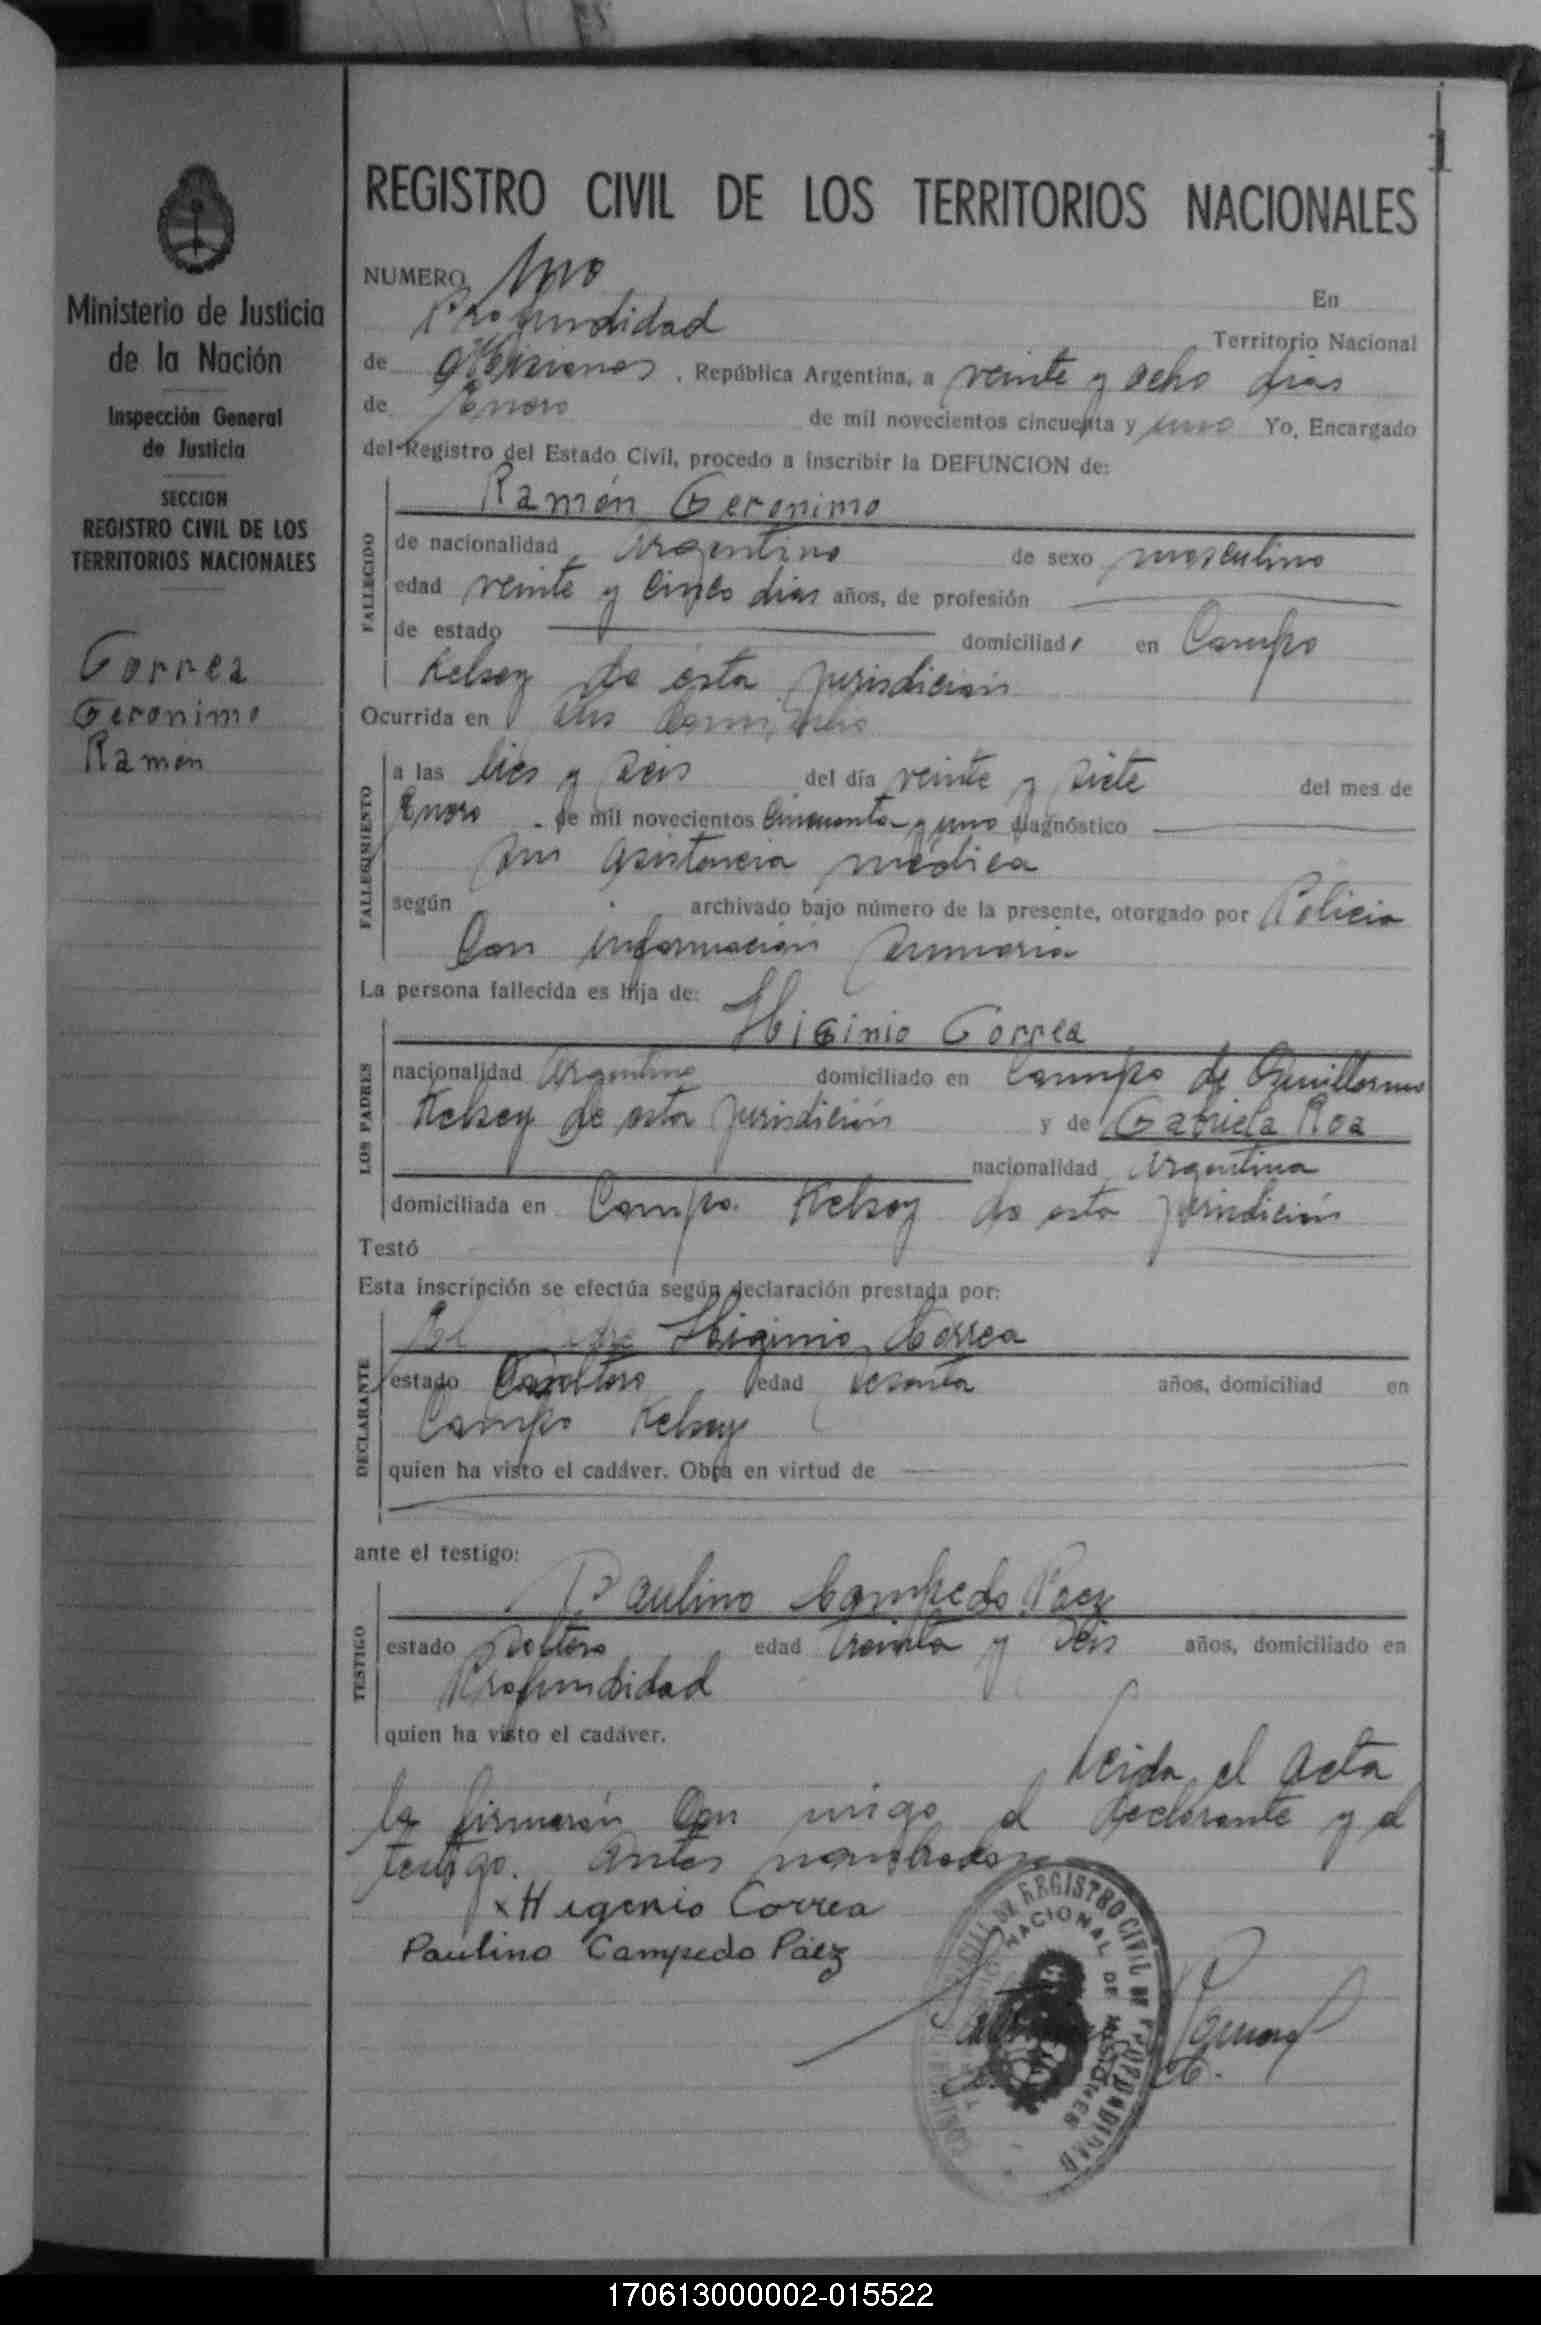 1
REGISTRO CIVIL DE LOS TERRITORIOS NACIONALES
Ministerio de Justicia
de la Nación
Inspección General
de Justicia
SECCION
REGISTRO CIVIL DE LOS
TERRITORIOS NACIONALES
Correa
Geronimo
Ramón
NUMERO Uno
En
Profundidad
Territorio Nacional
de Misiones, República Argentina, a veinte y ocho dias
de Enero de mil novecientos cincuenta y uno Yo, Encargado
del Registro del Estado Civil, procedo a inscribir la DEFUNCION de:
FALLECIDO
Ramón Geronimo
de nacionalidad Argentino de sexo masculino
edad veinte y cinco dias años, de profesión
de estado domiciliad en Campo
Kelsey de esta jurisdicion
Ocurrida en su domicilio
FALLECIMIENTO
a las dies y seis del día veinte y siete del mes de
Enero de mil novecientos cincuenta y uno diagnóstico
sin asistencia médica
según archivado bajo número de la presente, otorgado por Policia
Con informacion sumaria
La persona fallecida es hija de:
LOS PADRES
Higinio Correa
nacionalidad Argentino domiciliado en Campo de Guillermo
Kelsey de esta jurisdicion y de Gabriela Roa
nacionalidad Argentina
domiciliada en Campo Kelsey de esta jurisdicion
Testó
Esta inscripción se efectúa según declaración prestada por:
DECLARANTE
El Padre Higinio Correa
estado edad años, domiciliad en
Campo Kelsey
quien ha visto el cadáver. Obra en virtud de
ante el testigo:
TESTIGO
Paulino Campedo Paez
estado soltero edad treinta y seis años, domiciliado en
Profundidad
quien ha visto el cadáver.
Leida el acta
la firmarón con migo el declarante y el
testigo. antes nombrados
x Higenio Correa
Paulino Campedo Páez
REGISTRO CIVIL DE PROFUNDIDAD
NACIONAL DE MISIONES
170613000002-015522